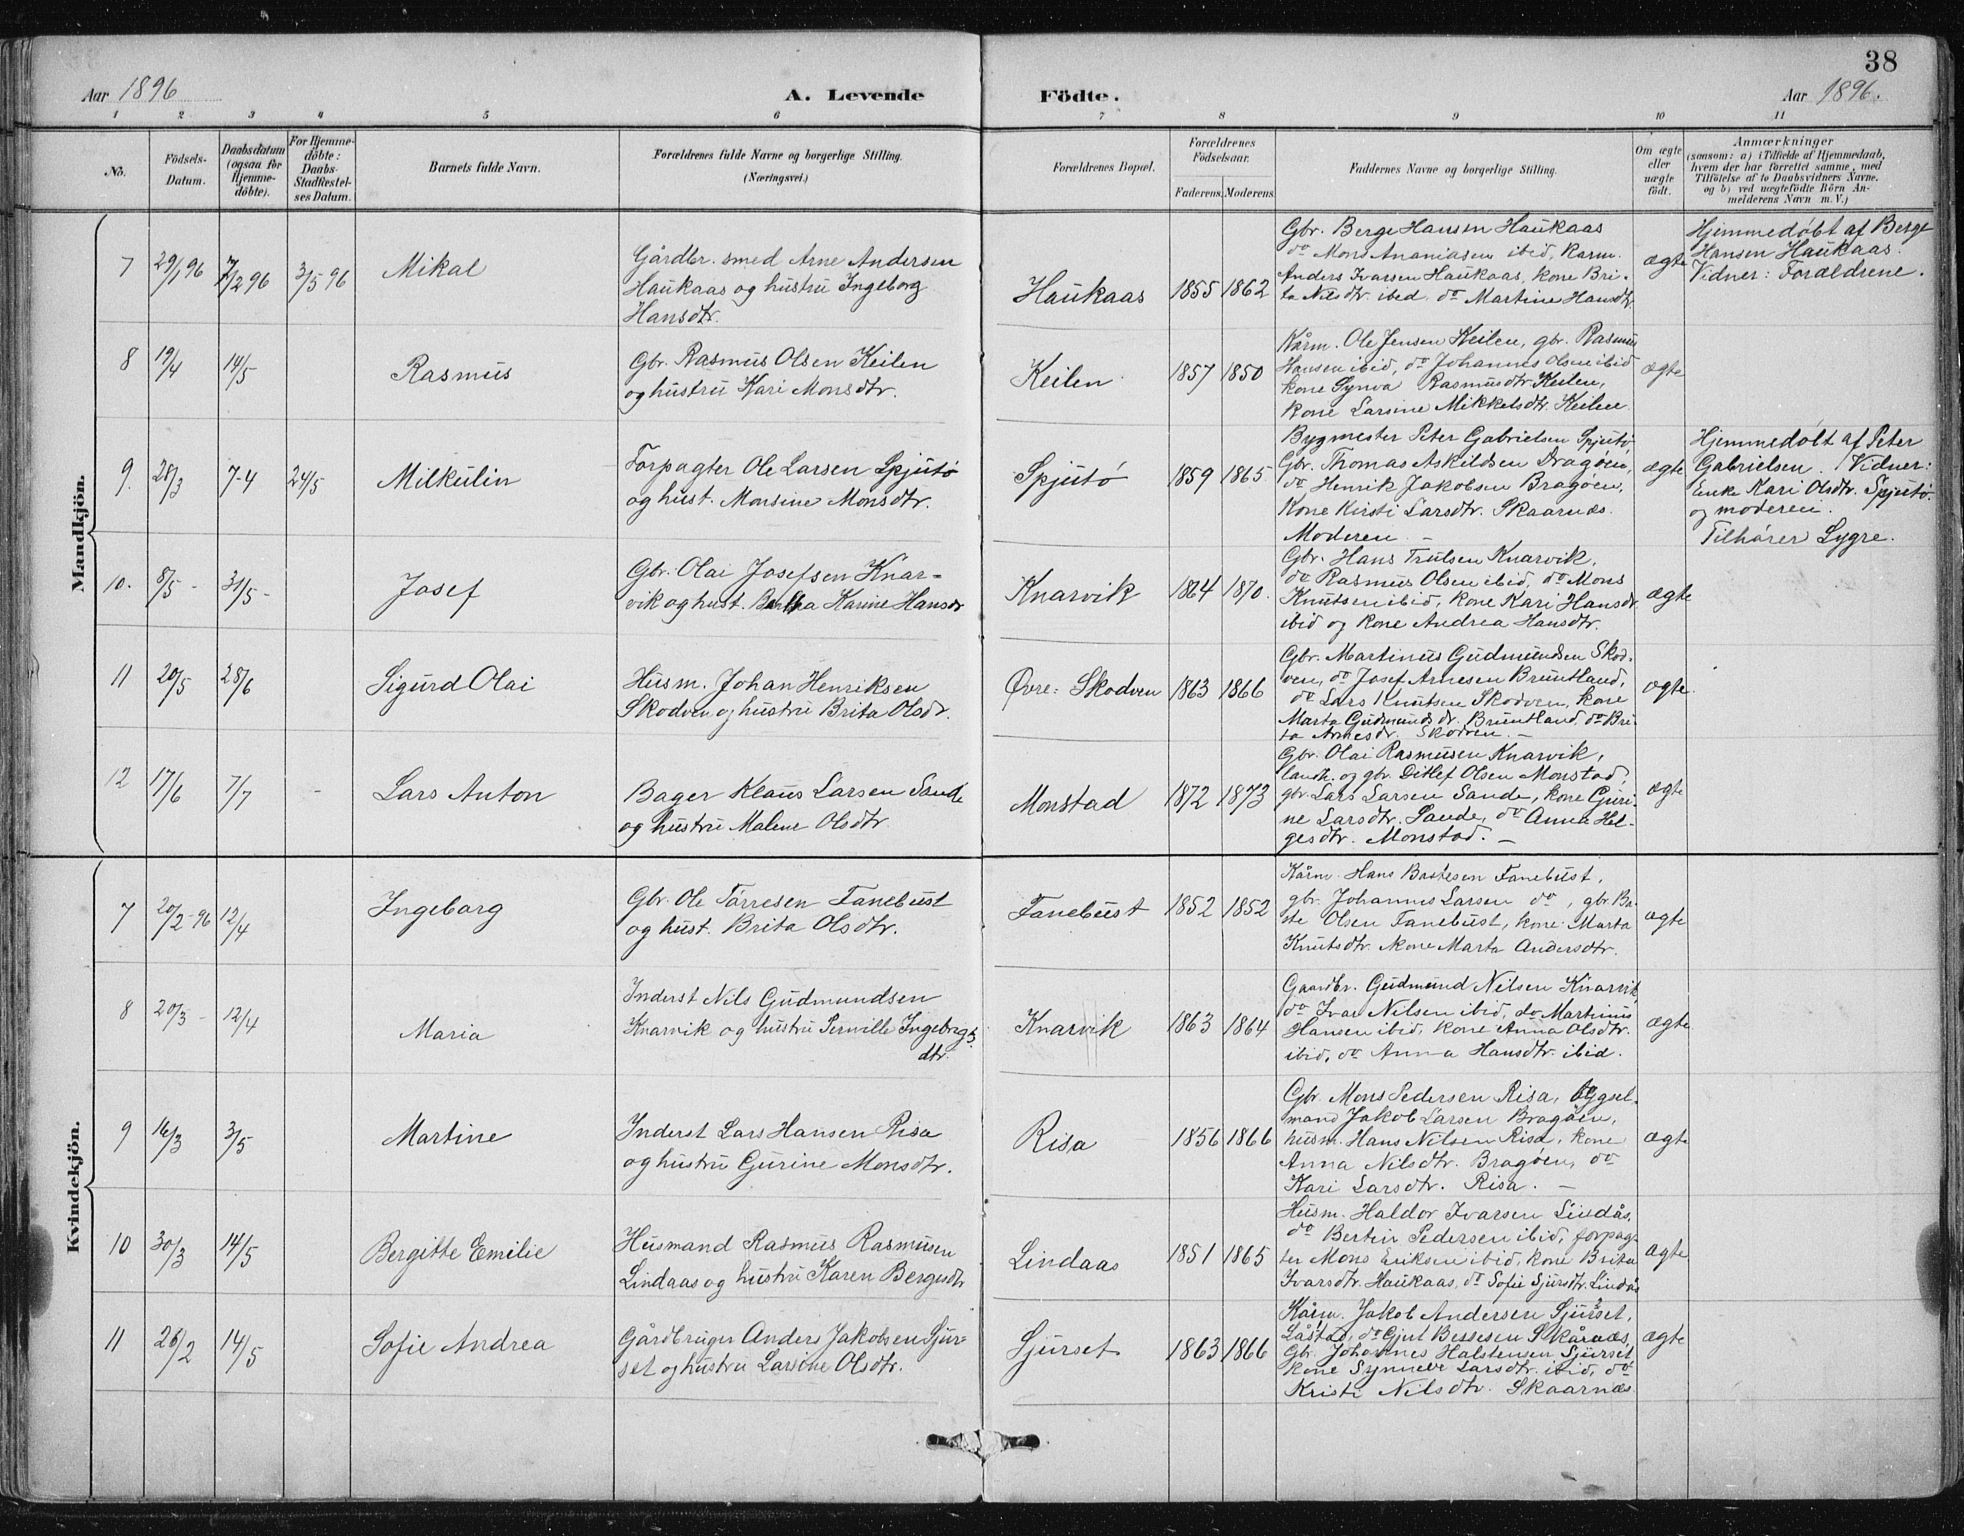 38
Aar 1896
A. Levende Födte.
Aar 1896.
1 2 3 4 5 6 7 8 9 10 11
No.
Födsels-
Datum.
Daabsdatum
(ogsaa for
Hjemme-
döbte).
For Hjemme-
döbte:
Daabs-
Stadfæstel-
ses Datum.
Barnets fulde Navn.
Forældrenes fulde Navne og borgerlige Stilling.
(Næringsvei.)
Forældrenes Bopæl.
Forældrenes
Födselsaar.
Faderens. Moderens.
Faddernes Navne og borgerlige Stilling.
Om ægte
eller
uægte
født.
Anmærkninger
(saasom: a) i Tilfælde af Hjemmedaab,
hvem der har forrettet samme, med
Tilföielse af to Daabsvidners Navne,
og b) ved uægtefödte Börn An-
melderens Navn m. V.)
Mandkjön.
7 29/1 96 7/2 96 3/5 96 Mikal
Gårdbr. smed Arne Andersen
Haukaas og hustru Ingeborg
Hansdtr.
Haukaas 1855 1862
Gbr. Berge Hansen Haukaas
do Mons Ananiasen ibid, Karm.
Anders Ivarsen Haukaas, kone Bri-
ta Nilsdtr. ibid. do Martine Hansdtr.
ægte
Hjemmedøbt af Berge
Hansen Haukaas.
Vidner: Forældrene.
8 19/4 14/5 Rasmus
Gbr. Rasmus Olsen Keilen
og hustru Kari Monsdtr.
Keilen 1857 1850
Kårm. Ole Jensen Keilen, gbr. Rasmus
Hansen ibid, do Johannes Olsen ibid
kone Synva Rasmusdtr. Keilen,
kone Larsine Mikkelsdtr. Keilen.
ægte
9. 28/3 7-4 24/5 Milkulin
Forpagter Ole Larsen Spjutø
og hust. Monsine Monsdtr.
Spjutø 1859 1865
Bygmester Peter Gabrielsen Spjutø,
Gbr. Thomas Askildsen Dragøen,
do Henrik Jakobsen Bragøen,
Kone Kirsti Larsdtr. Skaarnæs.
Moderen. -
ægte
Hjemmedøbt af Peter
Gabrielsen. Vidner:
Enke Kari Olsdtr. Spjutø.
og moderen.
Tilhører Lygre.
10. 8/5 - 31/5 - Josef
Gbr. Olai Josefsen Knar-
vik og hust. Bertha Karine Hansdr
Knarvik 1864 1870.
Gbr. Hans Trulsen Knarvik,
do Rasmus Olsen ibid, do Mons
Knutsen ibid, kone Kari Hansdr.
ibid og kone Andrea Hansdtr.
ægte
11 20/5 28/6 Sigurd Olai
Husm. Johan Henriksen
Skodven og hustru Brita Olsdr.
Øvre: Skodven 1863 1866
Gbr. Martinus Gudmundsen Skod-
ven, do Josef Arnesen Bruntland,
do Lars Knutsen Skodven, kone
Marta Gudmundsdr. Bruntland. do Bri-
ta Arnesdr. Skodven. -
ægte.
12 17/6 7/7 - Lars Anton
Bager Klaus Larsen Sande
og hustru Malene Olsdtr.
Monstad 1872 1873
Gbr. Olai Rasmusen Knarvik,
landh. og gbr. Ditlef Olsen Monstad,
gbr. Lars Larsen Sande, kone Guri-
ne Larsdtr. Sande, do Anna Hel-
gesdtr. Monstad. -
ægte
Kvindekjön.
7 20/2-96 12/4 Ingeborg
Gbr. Ole Tørresen Fanebust
og hust. Brita Olsdtr.
Fanebust 1852 1852
Kårm. Hans Bastesen Fanebust,
gbr. Johannes Larsen do, gbr. Ba-
ste Olsen Fanebust, kone Marta
Knutsdtr. kone Marta Andersdtr.
ægte
8 20/3 - 12/4 Maria
Inderst Nils Gudmundsen
Knarvik og hustru Pernille Ingebrigts
dtr.
Knarvik 1863 1864
Gaardbr. Gudmund Nilsen Knarvik
do Ivar Nilsen ibid, do Martinus
Hansen ibid, kone Anna Olsdtr.
ibid, do Anna Hansdtr. ibid.
ægte
9 16/3 3/5 Martine
Inderst Lars Hansen Risa
og hustru Gurine Monsdtr.
Risa 1856 1866
Gbr. Mons Pedersen Risa, bygsel-
mand Jakob Larsen Bragøen,
husm. Hans Nilsen Risa, kone
Anna Nilsdtr. Bragøen, do
Kari Larsdtr. Risa. -
ægte
10 30/3 14/5 Bergitte Emilie
Husmand Rasmus Rasmusen
Lindaas og hustru Karen Bergesdtr
Lindaas 1851 1865
Husm. Haldor Ivarsen Lindås,
do Bertin Pedersen ibid, forpag-
ter Mons Eriksen ibid, kone Brita
Ivarsdtr. Haukaas, do Sofie Sjursdtr. Lindås
ægte
11 26/2 14/5 Sofie Andrea
Gårdbruger Anders Jakobsen Sjur-
set og hustru Larsine Olsdtr.
Sjurset 1863 1866
Kårm. Jakob Andersen Sjurset,
do Gjert Bessesen Skårnæs,
Gbr. Johannes Halstensen Sjurset
kone Synneve Larsdtr. ibid, do
Kristi Nilsdtr. Skaarnæs.
ægte